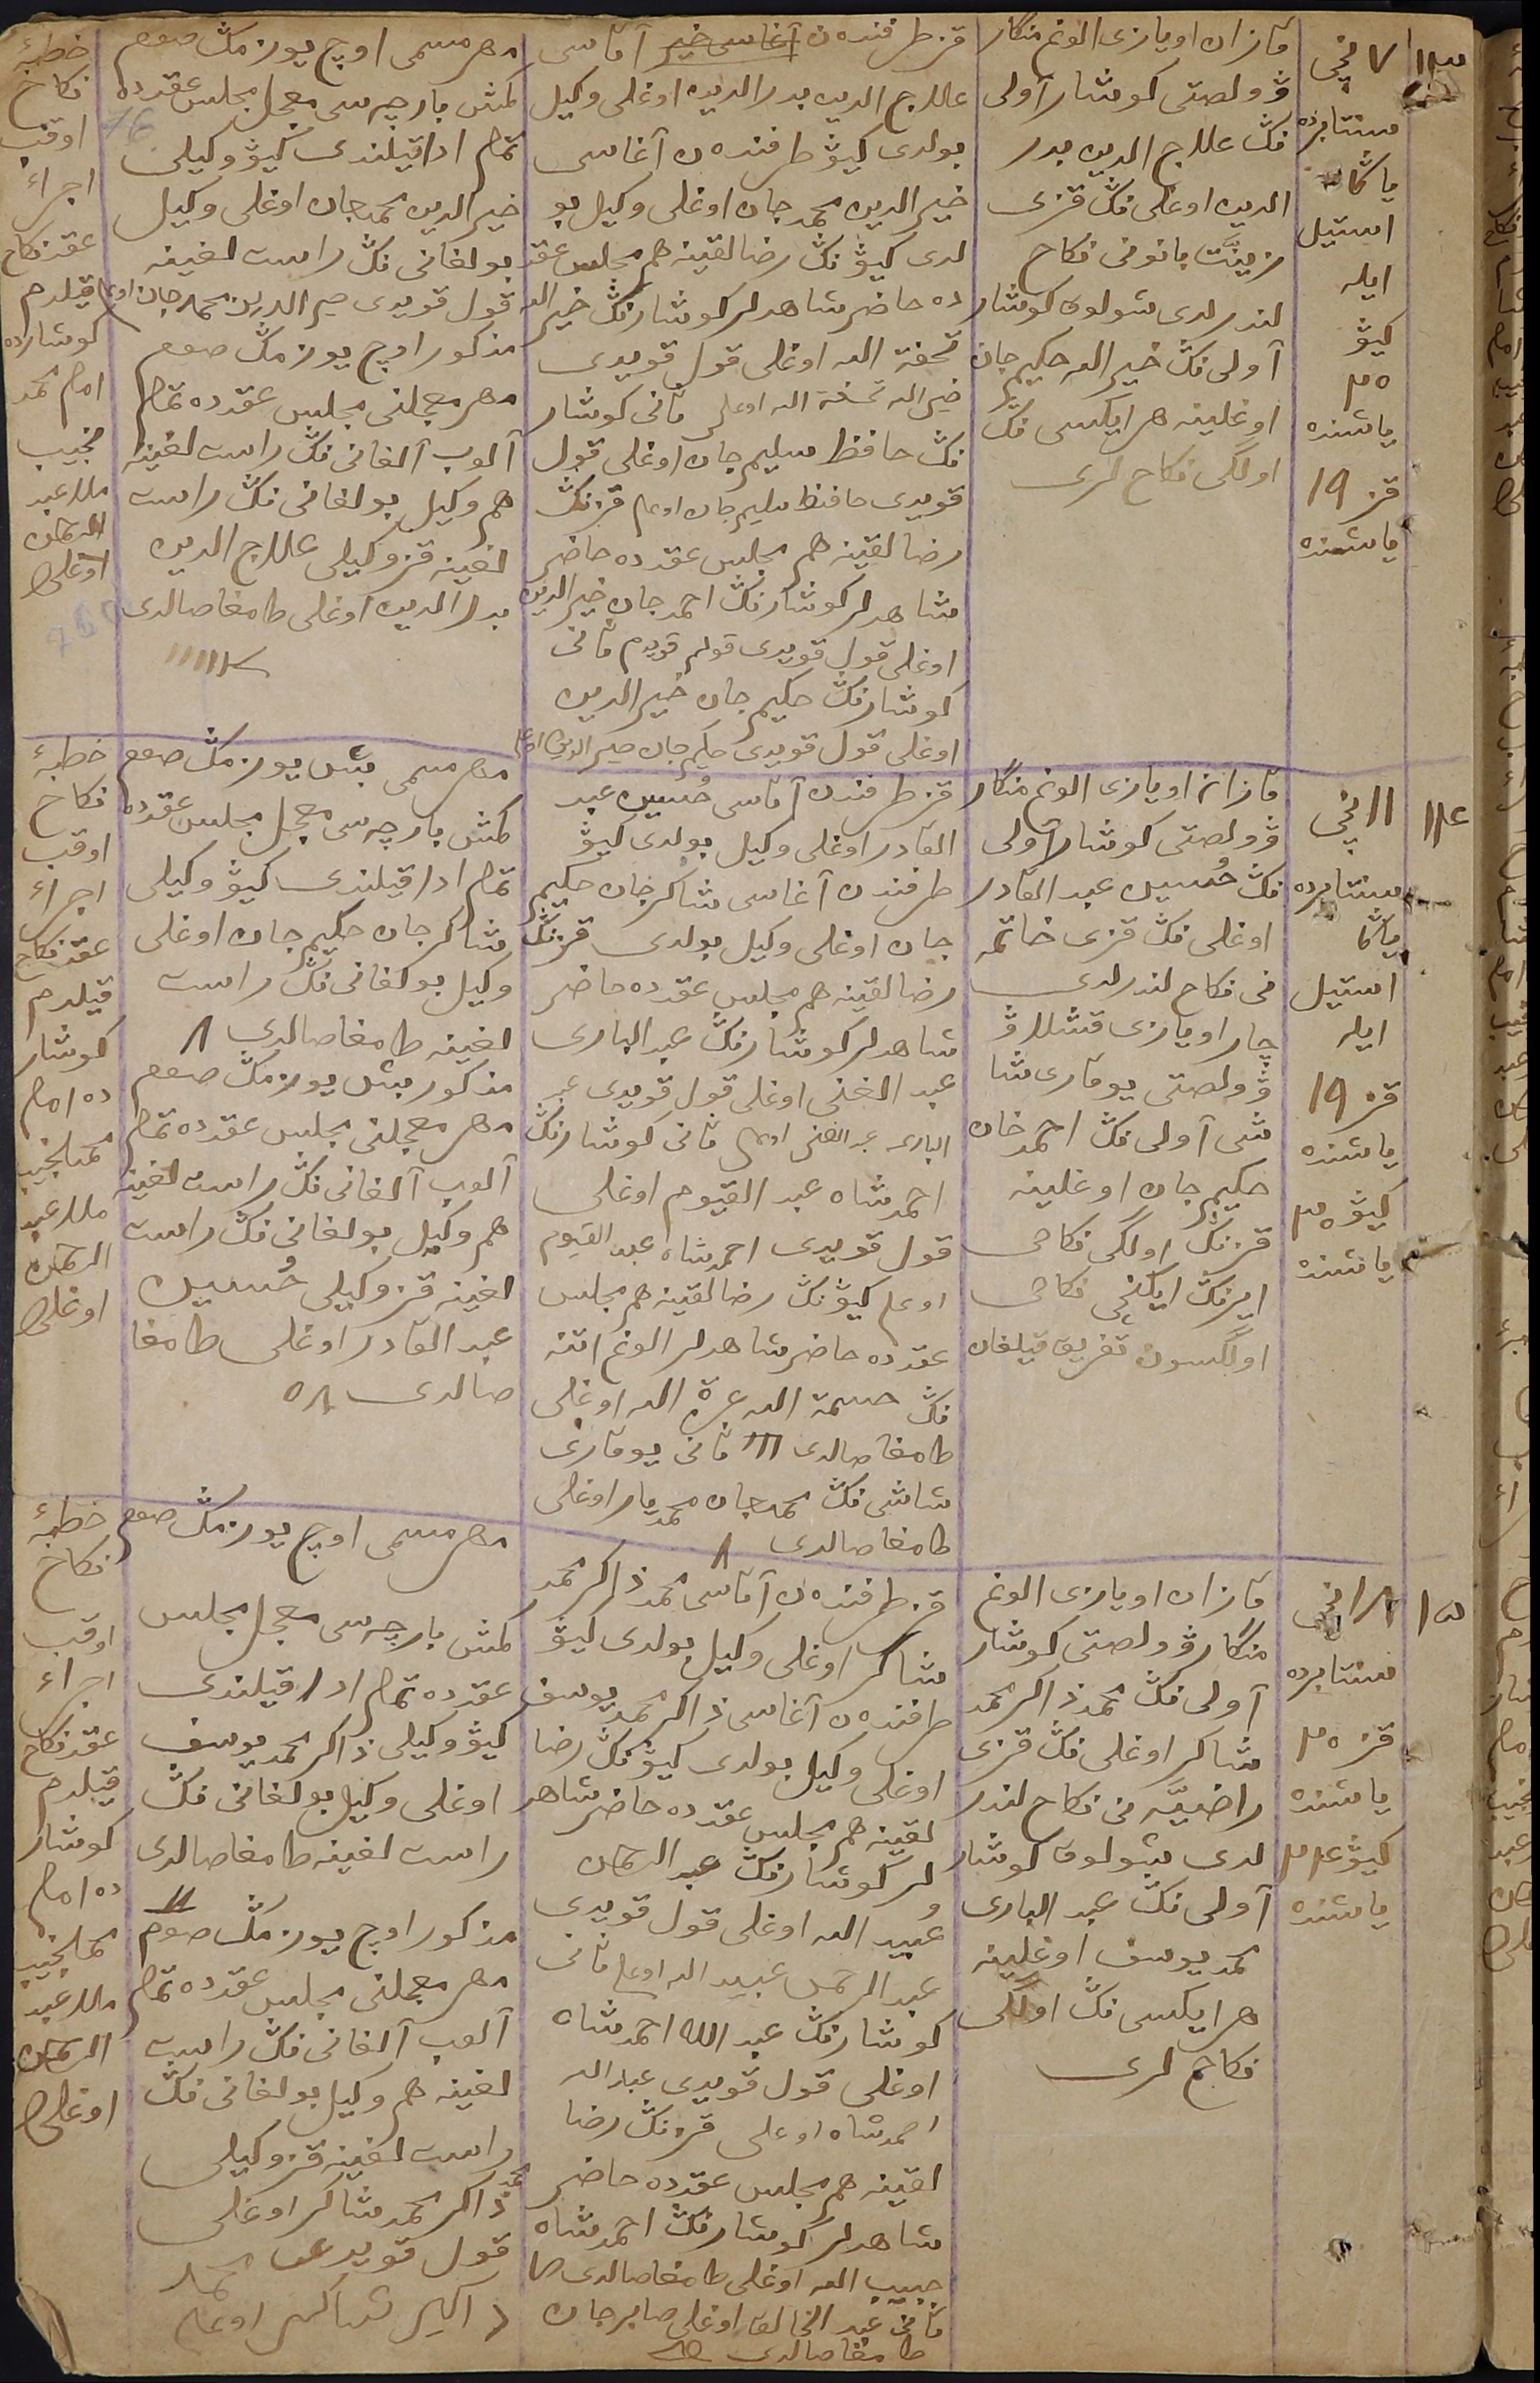 ١٣
٧ نچی
سنتابرده
یاڭا
استیل
ایله
کیۋ
٢٥
یاشنده
قز ١٩
یاشنده
قازان اویازی الوغ منگار
ۋولصتی کوشار آولی
نڭ علاج الدین بدر
الدین اوغلی نڭ قزی
زینت بانونی نکاح
لندرلدی شولوق کوشار
آولی نڭ خیر الله حکیم جان
اوغلینه هر ایکسی نڭ
اولگی نکاح لری
قز طرفندهن آتاسی
علاج الدین بدر الدین اوغلی وکیل
بولدی کیۋ طرفندهن آغاسی
خیر الدین محمد جان اوغلی وکیل بو
لدی کیۋ نڭ رضالقینه هم مجلس عقد
ده حاضر شاهدلر کوشارنڭ خیر الله
تحفة الله اوغلی قول قویدی
خیر الله تحفة الله اوغلی ثانی کوشار
نڭ حافظ سلیم جان اوغلی قول
قویدی حافظ سلیم جان اوغلی قزنڭ
رضالقینه هم مجلس عقدده حاضر
شاهدلر کوشارنڭ احمد جان خیر الدین
اوغلی قول قویدی قولم قویدم ثانی
کوشارنڭ حکیم جان خیر الدین
اوغلی قول قویدی حکیم جان خیر الدین اوغلی
مهر مسمی اوچ یوز مڭ صوم
کمش بارچه سی معجل مجلس عقدده
تمام ادا قیلندی کیۋ وکیلی
خیر الدین محمد جان اوغلی وکیل
بولغانی نڭ راست لغینه
قول قویدی خیر الدین محمد جان اوغلی
مذکور اوچ یوز مڭ صوم
مهر معجلنی مجلس عقدده تمام
آلوب آلغانی نڭ راست لغینه
هم وکیل بولغانی نڭ راست
لغینه قز وکیلی علاج الدین
بدر الدین اوغلی طامغا صالدی
خطبۀ
نکاح
اوقب
اجراء
عقد نکاح
قیلدم
کوشارده
امام محمد
نجیب
ملا عبد
الرحمان
اوغلی
١٤
١١ نچی
سنتابرده
یاڭا
استیل
ایله
قز ١٩
یاشنده
کیۋ ٢٥
یاشنده
قازان اویازی الوغ منگار
ۋولصتی کوشار آولی
نڭ حُسین عبد القادر
اوغلی نڭ قزی خاتمه
نی نکاح لندرلدی
چار اویازی قشلاۋ
ۋولصتی یوقاری شا
شی آولی نڭ احمد خان
حکیم جان اوغلینه
قزنڭ اولگی نکاحی
ایرنڭ ایکنچی نکاحی
اولگسون تفریق قیلغان
قز طرفندن آتاسی حُسین عبد
القادر اوغلی وکیل بولدی کیۋ
طرفندن آغاسی شاکر جان حکیم
جان اوغلی وکیل بولدی قزنڭ
رضالقینه هم مجلس عقدده حاضر
شاهدلر کوشارنڭ عبد الباری
عبد الغنی اوغلی قول قویدی عبد
الباری عبد الغنی اوغلی ثانی کوشارنڭ
احمد شاه عبد القیوم اوغلی
قول قویدی احمد شاه عبد القیوم
اوغلی کیۋ نڭ رضالقینه هم مجلس
عقدده حاضر شاهدلر الوغ اتنه
نڭ حسمة الله عزة الله اوغلی
طامغا صالدی ااا ثانی یوقاری
شاشی نڭ محمد جان محمد یار اوغلی
طامغا صالدی ٨
مهر مسمی بش یوز مڭ صوم
کمش بارچه سی معجل مجلس عقدده
تمام ادا قیلندی کیۋ وکیلی
شاکر جان حکیم جان اوغلی
وکیل بولغانی نڭ راست
لغینه طامغا صالدی ٨
مذکور بش یوز مڭ صوم
مهر معجلنی مجلس عقدده تمام
آلوب آلغانی نڭ راست لغینه
هم وکیل بولغانی نڭ راست
لغینه قز وکیلی حُسین
عبد القادر اوغلی طامغا
صالدی
خطبۀ
نکاح
اوقب
اجراء
عقد نکاح
قیلدم
کوشار
ده امام
محمد نجیب
ملا عبد
الرحمان
اوغلی
١٥
١٨ نچی
سنتابرده
قز ٢٥
یاشنده
کیۋ ٢٤
یاشنده
قازان اویازی الوغ
منگار ۋولصتی کوشار
آولی نڭ محمد ذاکر محمد
شاکر اوغلی نڭ قزی
راضیّه نی نکاح لندر
لدی شولوق کوشار
آولی نڭ عبد الباری
محمد یوسف اوغلینه
هر ایکسی نڭ اولگی
نکاح لری
قز طرفندهن آتاسی محمد ذاکر محمد
شاکر اوغلی وکیل بولدی کیۋ
طرفندهن آغاسی ذاکر محمد یوسف
اوغلی وکیل بولدی کیۋ نڭ رضا
لقینه هم مجلس عقدده حاضر شاهد
لر کوشارنڭ عبد الرحمان
عُبید الله اوغلی قول قویدی
عبد الرحمن عبید الله اوغلی ثانی
کوشارنڭ عبد الله احمد شاه
اوغلی قول قویدی عبد الله
احمد شاه اوغلی قزنڭ رضا
لقینه هم مجلس عقدده حاضر
شاهدلر کوشارنڭ احمد شاه
حبیب الله اوغلی طامغا صالدی
ثانی عبد الخالق اوغلی صابر جان
طامغا صالدی
مهر مسمی اوچ یوز مڭ صوم
کمش بارچه سی معجل مجلس
عقدده تمام ادا قیلندی
کیۋ وکیلی ذاکر محمد یوسف
اوغلی وکیل بولغانی نڭ
راست لغینه طامغا صالدی
مذکور اوچ یوز مڭ صوم
مهر معجلنی مجلس عقدده تمام
آلوب آلغانی نڭ راست
لغینه هم وکیل بولغانی نڭ
راست لغینه قز وکیلی
محمد ذاکر محمد شاکر اوغلی
قول قویدی محمد
ذاکر شاکر اوغلی
خطبۀ
نکاح
اوقب
اجراء
عقد نکاح
قیلدم
کوشار
ده امام
محمد نجیب
ملا عبد
الرحمان
اوغلی